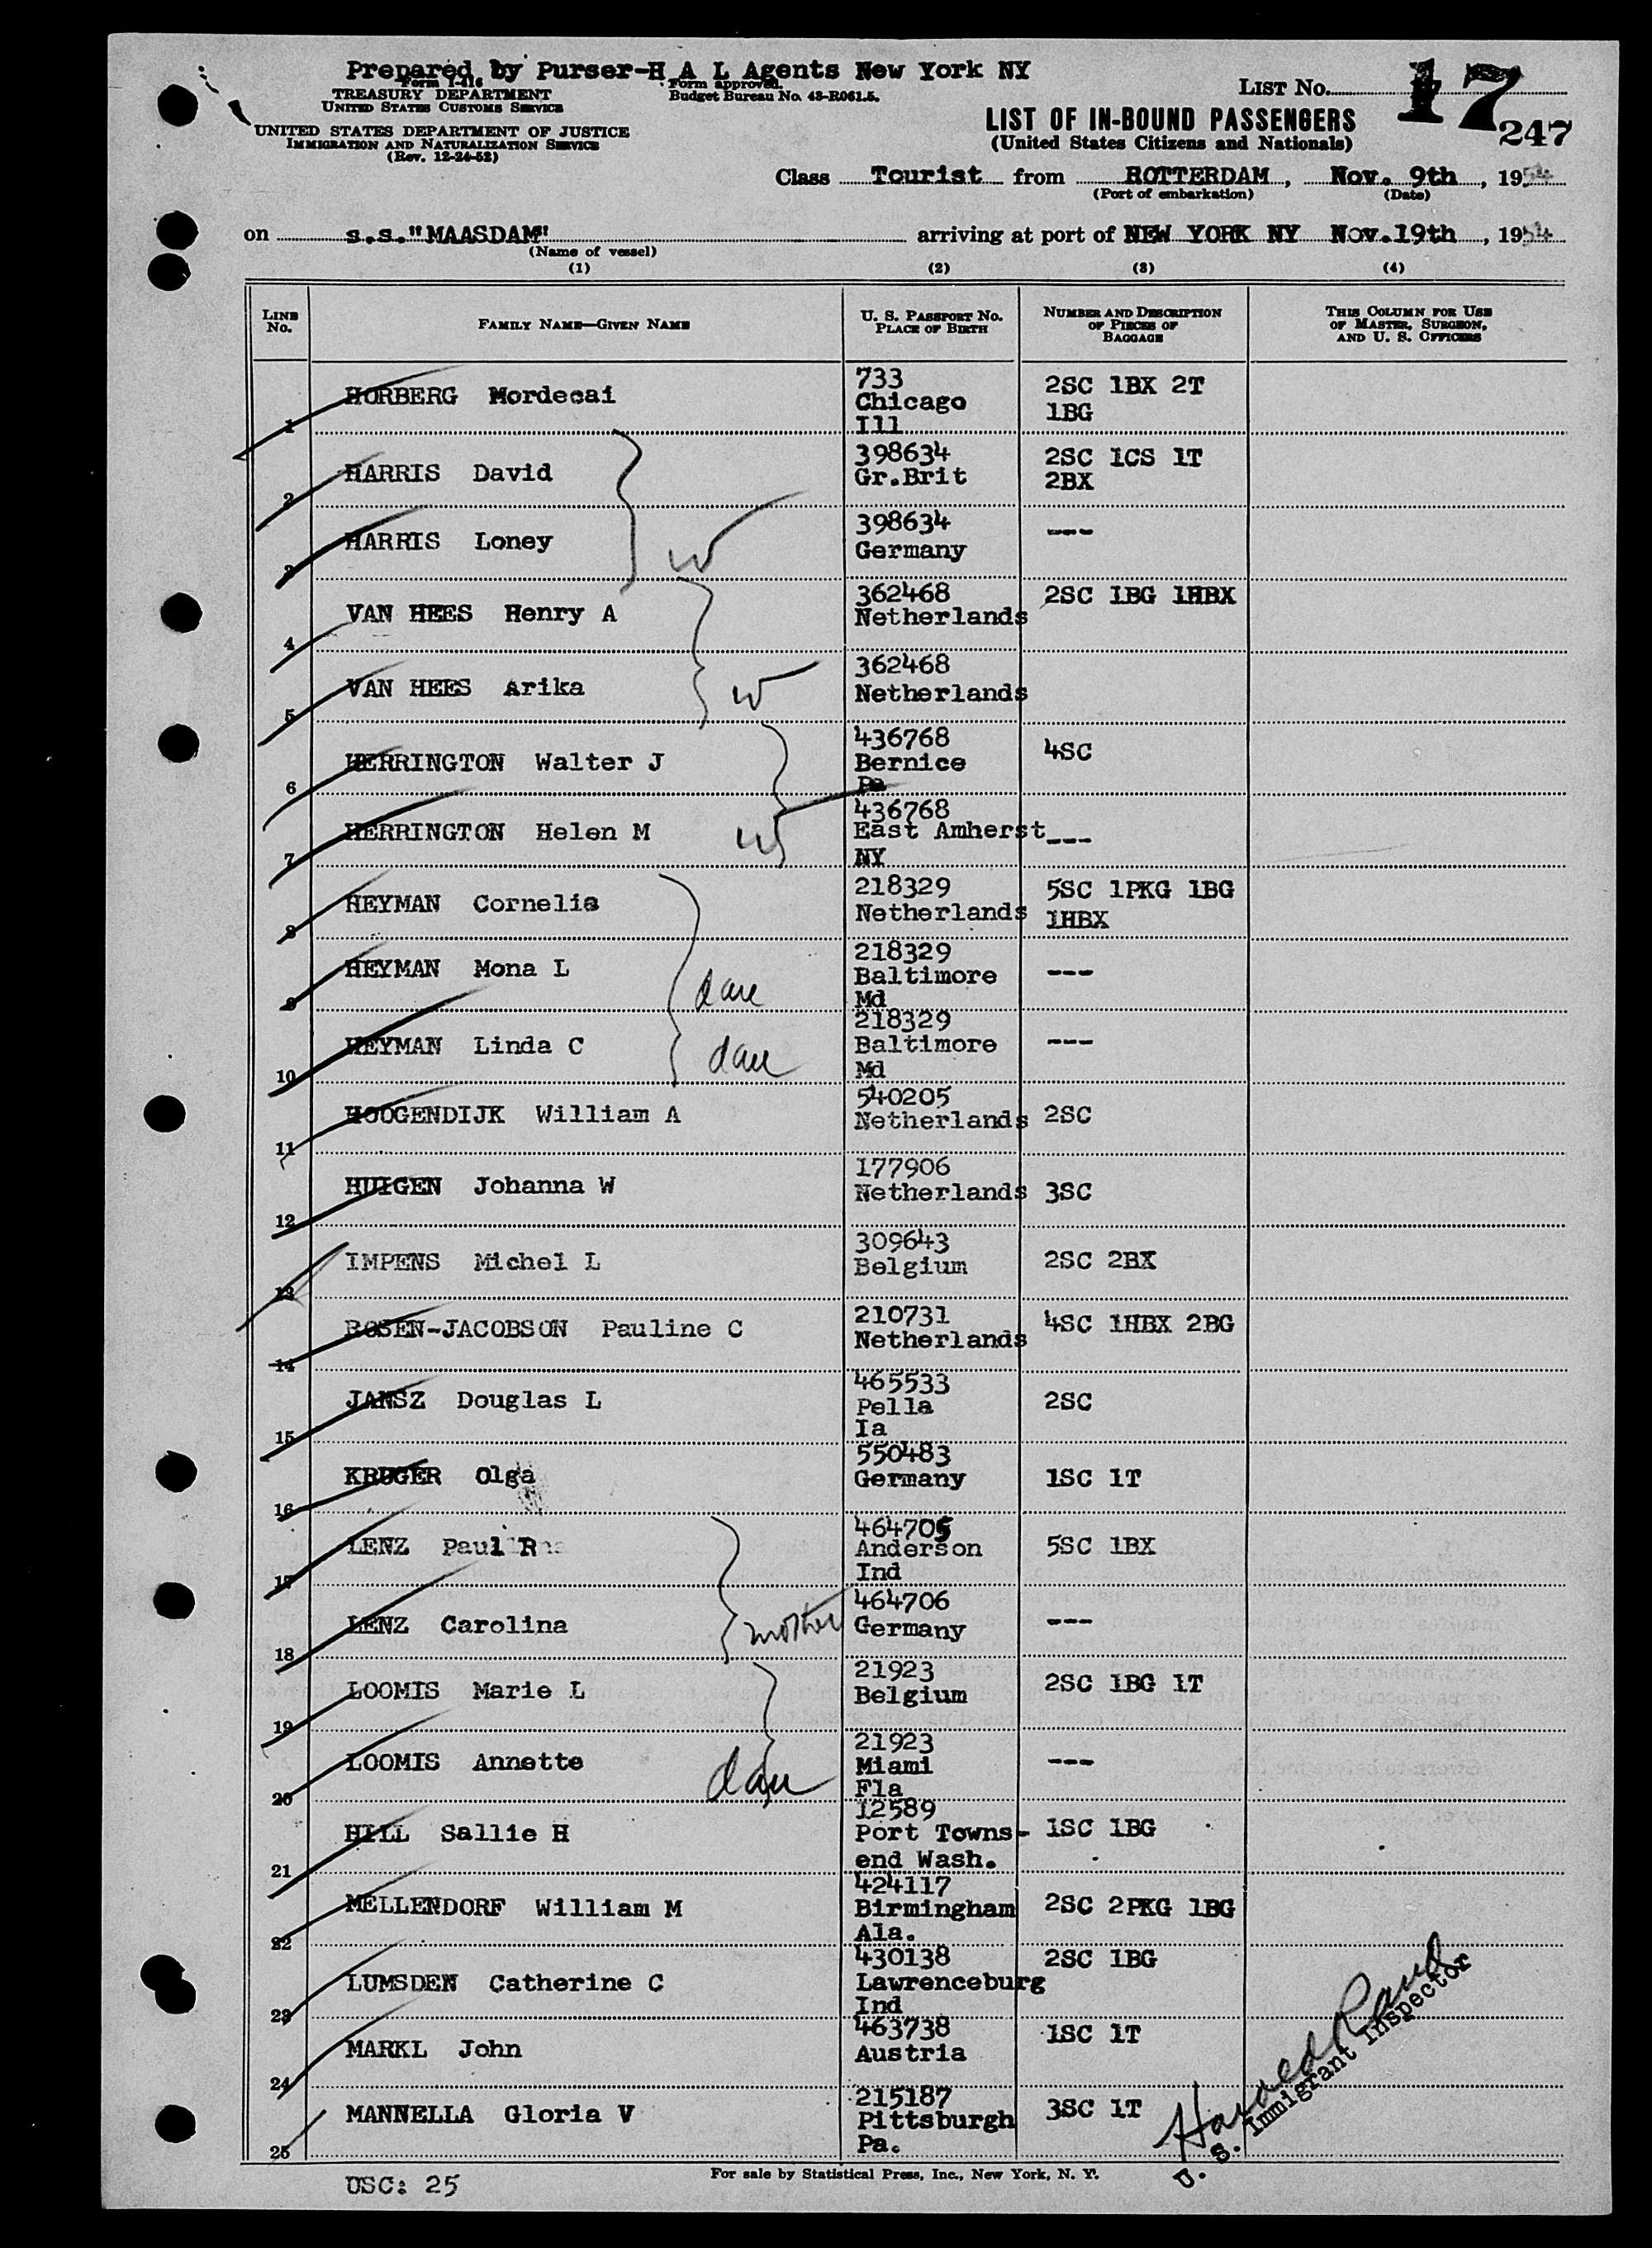 Prepared by Purser-H A L Agents New York NY
Form I-416
TREASURY DEPARTMENT
UNITED STATES CUSTOMS SERVICE
Form approved.
Budget Bureau No. 43-R061.5.
UNITED STATES DEPARTMENT OF JUSTICE
IMMIGRATION AND NATURALIZATION SERVICE
(Rev. 12-24-52)
LIST No. 17
247
LIST OF IN-BOUND PASSENGERS
(United States Citizens and Nationals)
Class Tourist from ROTTERDAM, Nov. 9th, 1954
(Port of embarkation) (Date)
on s.s."MAASDAM" arriving at port of NEW YORK NY Nov.19th, 1954
(Name of vessel)
(1) (2) (3) (4)
LINE No. FAMILY NAME—GIVEN NAME U. S. PASSPORT No. PLACE OF BIRTH NUMBER AND DESCRIPTION OF PIECES OF BAGGAGE THIS COLUMN FOR USE OF MASTER, SURGEON, AND U. S. OFFICERS
1 HORBERG Mordecai 733 Chicago Ill 2SC 1BX 2T 1BG
2 HARRIS David 398634 Gr.Brit 2SC 1CS 1T 2BX
3 HARRIS Loney w 398634 Germany ---
4 VAN HEES Henry A 362468 Netherlands 2SC 1BG 1HBX
5 VAN HEES Arika w 362468 Netherlands
6 HERRINGTON Walter J 436768 Bernice Pa 4SC
7 HERRINGTON Helen M w 436768 East Amherst NY ---
8 HEYMAN Cornelia 218329 Netherlands 5SC 1PKG 1BG 1HBX
9 HEYMAN Mona L dau 218329 Baltimore Md ---
10 HEYMAN Linda C dau 218329 Baltimore Md ---
11 HOOGENDIJK William A 540205 Netherlands 2SC
12 HUIGEN Johanna W 177906 Netherlands 3SC
13 IMPENS Michel L 309643 Belgium 2SC 2BX
14 ROSEN-JACOBSON Pauline C 210731 Netherlands 4SC 1HBX 2BG
15 JANSZ Douglas L 465533 Pella Ia 2SC
16 KRUGER Olga 550483 Germany 1SC 1T
17 LENZ Paul R 464705 Anderson Ind 5SC 1BX
18 LENZ Carolina mother 464706 Germany ---
19 LOOMIS Marie L 21923 Belgium 2SC 1BG 1T
20 LOOMIS Annette dau 21923 Miami Fla ---
21 HILL Sallie H 12589 Port Towns-end Wash. 1SC 1BG
22 MELLENDORF William M 424117 Birmingham Ala. 2SC 2PKG 1BG
23 LUMSDEN Catherine C 430138 Lawrenceburg Ind 2SC 1BG
24 MARKL John 463738 Austria 1SC 1T
25 MANNELLA Gloria V 215187 Pittsburgh Pa. 3SC 1T
U. S. Immigrant Inspector
USC: 25
For sale by Statistical Press, Inc., New York, N. Y.